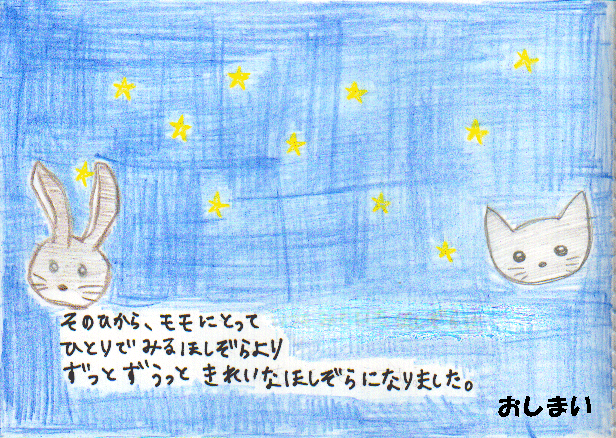 そのひから、モモにとって
ひとりでみるほしぞらより
ずっとずうっと きれいなほしぞらになりました。
おしまい